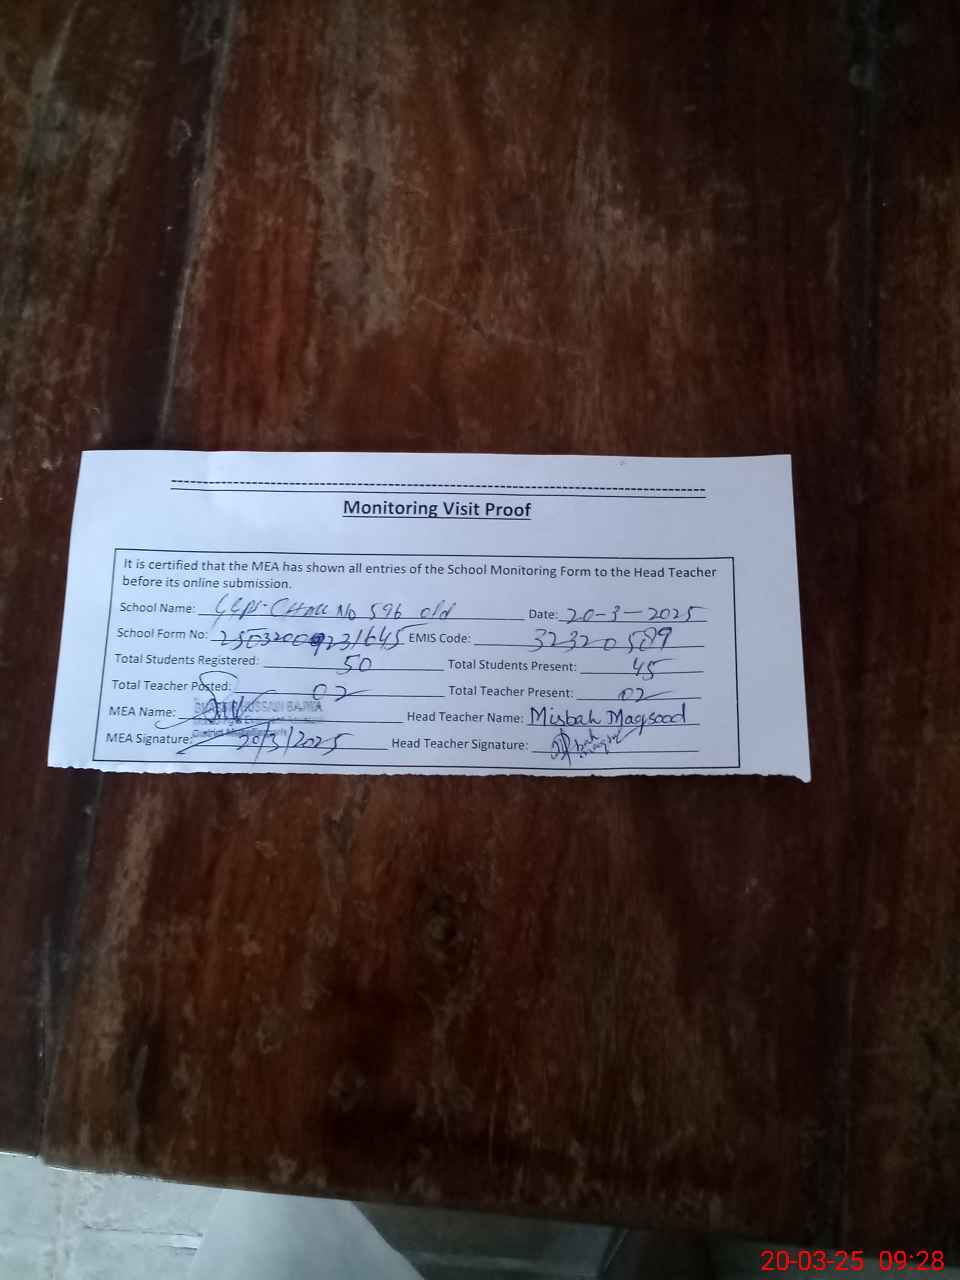 Monitoring Visit Proof
It is certified that the MEA has shown all entries of the School Monitoring Form to the Head Teacher
before its online submission.
School Name: No 596 old Date: 20-3-2025
School Form No: EMIS Code: 32320589
Total Students Registered: 50 Total Students Present: 45
Total Teacher Posted: 02 Total Teacher Present: 02
MEA Name: HUSSAIN BAJWA Head Teacher Name: Misbah Maqsood
MEA Signature: 20/3/2025 Head Teacher Signature:
20-03-25 09:28